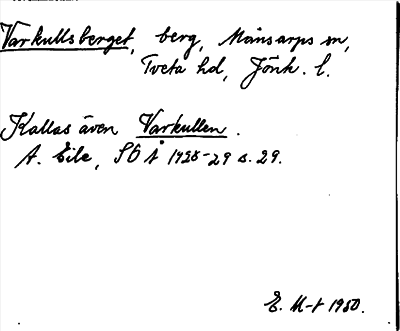 Varkullsberget, berg, Månsarps sn,
Tveta hd, Jönk. l.
Kallas även Varkullen.
A. Eile, SOÅ 1928-29 s. 29.
E. M-t 1950.